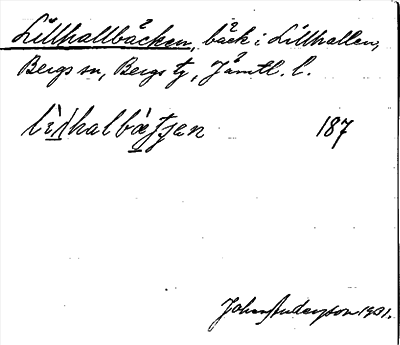 Lillhallbäcken, bäck i Lillhallen,
Bergs sn, Bergs tg, Jämtl. l.
187
Johan Anderson 1901.